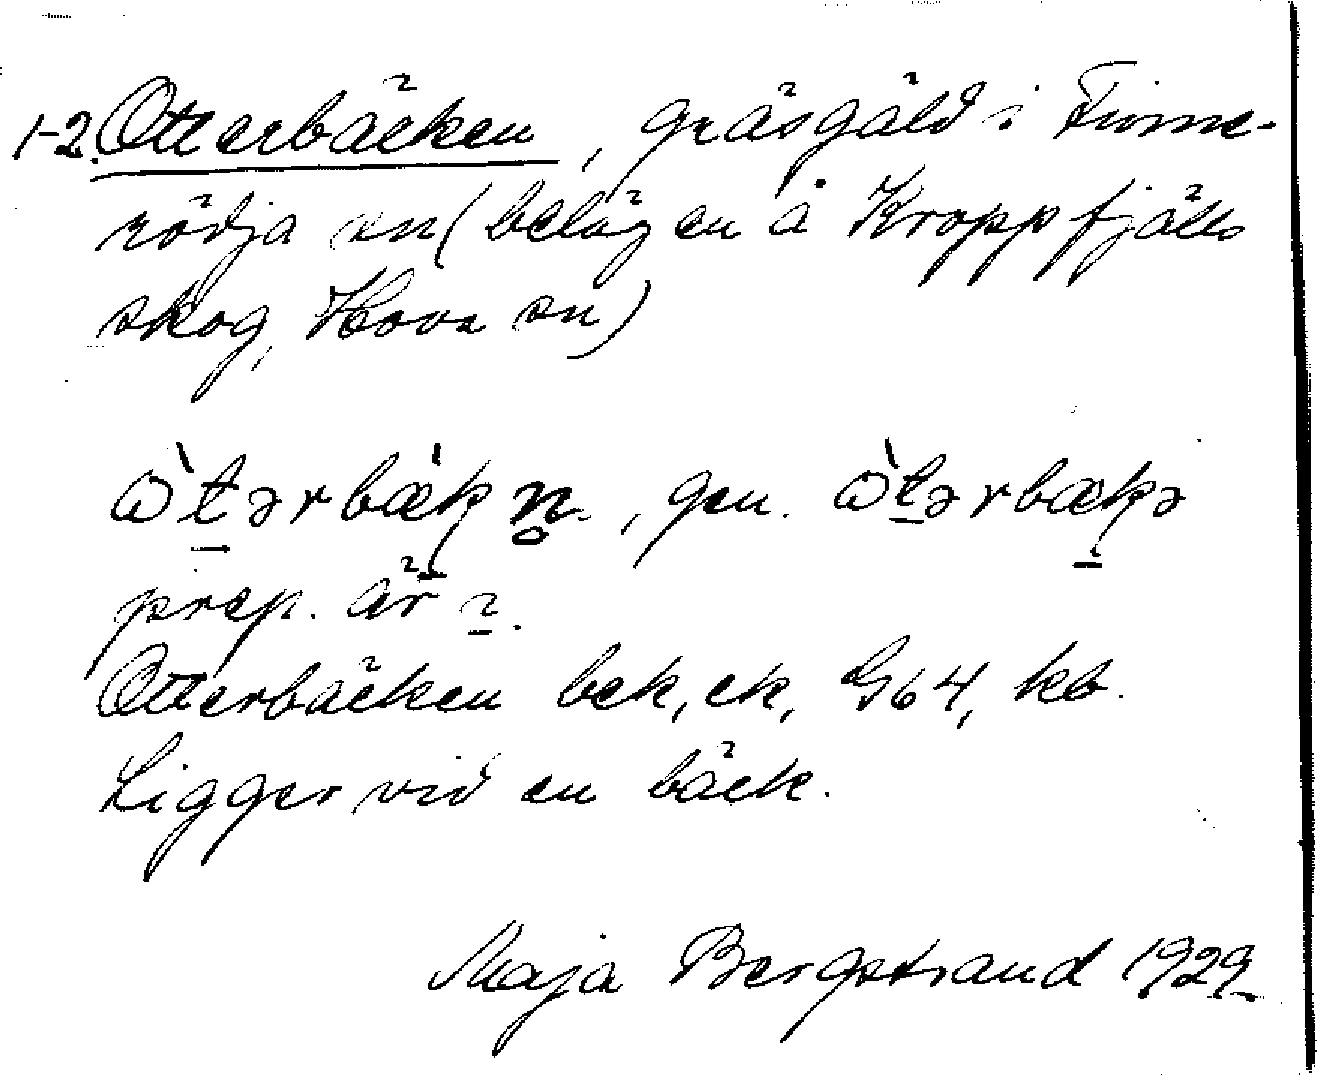 1-2. Otterbäcken, gräsgäld i Finne-
rödja sn (belägen å Kroppfjälls
skog, Hova sn)
ὼtərbækn̥, gen. ὼtərbækə
prep. är i.
Otterbäcken bek, ek, G64, kb.
Ligger vid en bäck.
Maja Bergstrand 1929